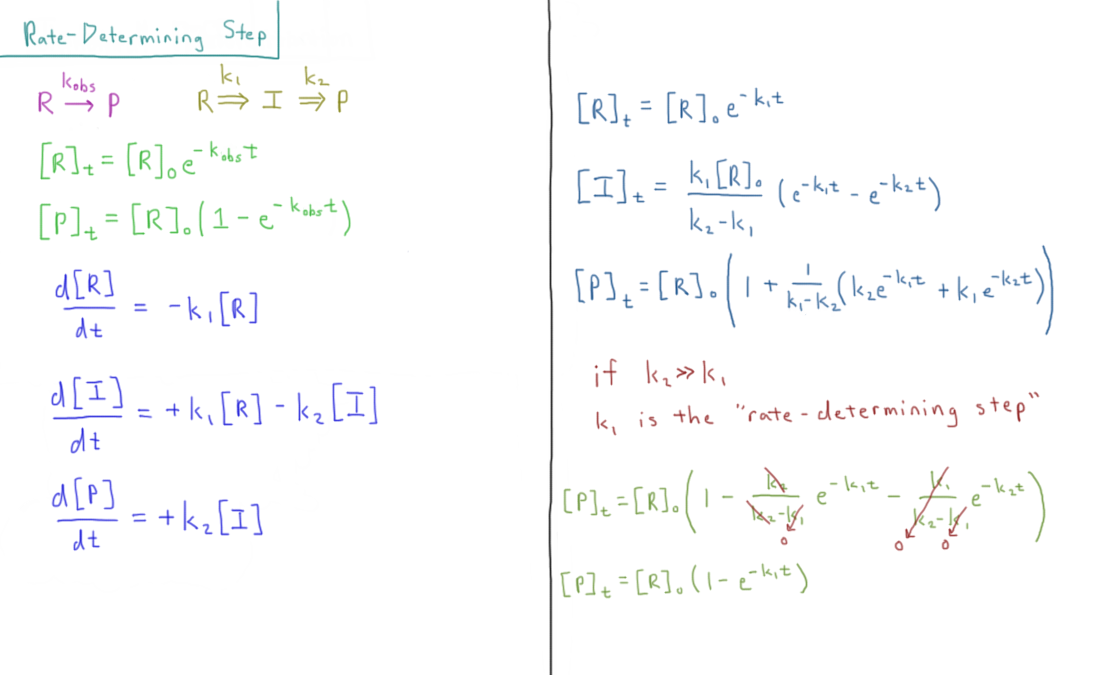 Rate-Determining Step
R →(k_obs) P    R ⇒(k₁) I ⇒(k₂) P
[R]_t = [R]₀e^(-k_obs t)
[P]_t = [R]₀(1 - e^(-k_obs t))
d[R]/dt = -k₁[R]
d[I]/dt = +k₁[R] - k₂[I]
d[P]/dt = +k₂[I]
[R]_t = [R]₀e^(-k₁t)
[I]_t = k₁[R]₀/(k₂-k₁) (e^(-k₁t) - e^(-k₂t))
[P]_t = [R]₀(1 + 1/(k₁-k₂) (k₂e^(-k₁t) + k₁e^(-k₂t)))
if k₂ >> k₁
k₁ is the "rate-determining step"
[P]_t = [R]₀(1 - k₂/(k₂-k₁) e^(-k₁t) - k₁/(k₂-k₁) e^(-k₂t))
0 0 0
[P]_t = [R]₀(1 - e^(-k₁t))